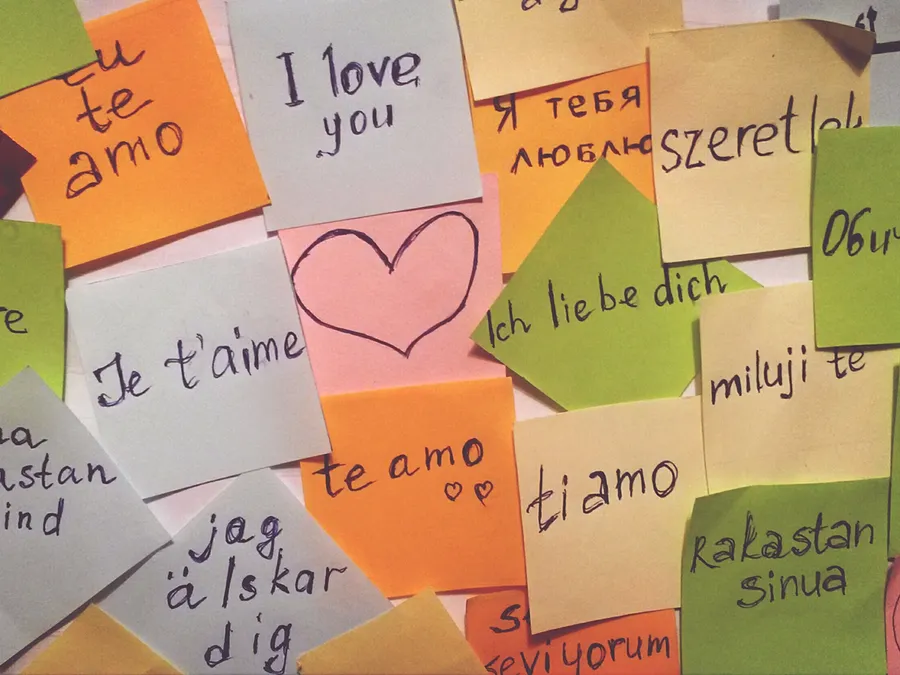 Eu
te
amo
I love
you
Я тебя
люблю
szeretlek
Ich liebe dich
Je t'aime
miluji te
te amo
ti amo
jag
älskar
dig
Rakastan
sinua
seviyorum